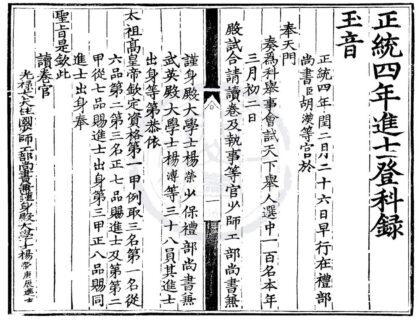 正統四年進士登科録
玉音
正統四年閏二月二十六日早行在禮部
尚書臣胡濙等官於
奉天門
奏為科舉事會試天下舉人選中一百名本年
三月初二日
殿試合請讀卷及執事等官少師工部尚書兼
謹身殿大學士楊榮少保禮部尚書兼
武英殿大學士楊溥等三十八員其進士
出身等第恭依
太祖高皇帝欽定資格第一甲例取三名第一名從
六品第二第三名正七品賜進士及第第二
甲從七品賜進士出身第三甲正八品賜同
進士出身奉
聖旨是欽此
讀卷官
光祿大夫柱國少師工部尚書兼謹身殿大學士楊榮庚辰進士